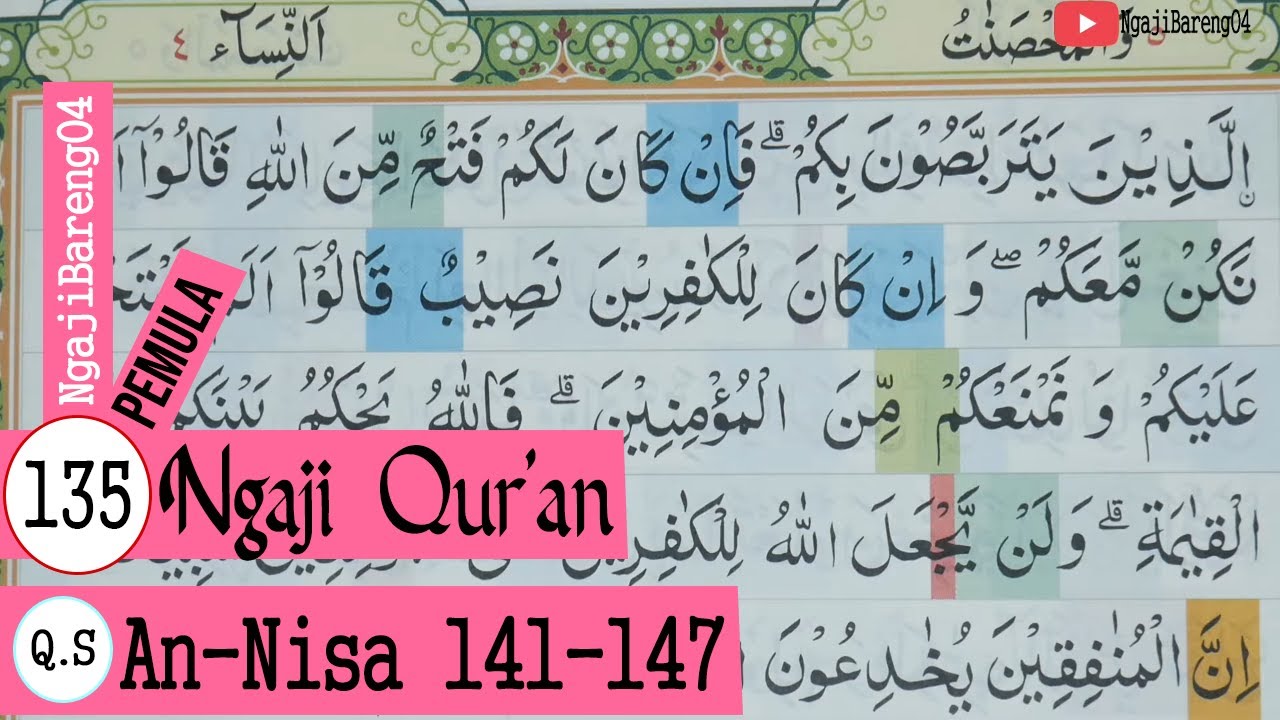 اَلنِّسَاۤء ٤
وَالْمُحْصَنٰتُ
NgajiBareng04
NgajiBareng04
PEMULA
ࣙالَّذِيْنَ يَتَرَبَّصُوْنَ بِكُمْۗ فَاِنْ كَانَ لَكُمْ فَتْحٌ مِّنَ اللّٰهِ قَالُوْٓا
نَكُنْ مَّعَكُمْۖ وَاِنْ كَانَ لِلْكٰفِرِيْنَ نَصِيْبٌ قَالُوْٓا
عَلَيْكُمْ وَنَمْنَعْكُمْ مِّنَ الْمُؤْمِنِيْنَۗ فَاللّٰهُ يَحْكُمُ بَيْنَكُمْ
الْقِيٰمَةِۗ وَلَنْ يَّجْعَلَ اللّٰهُ لِلْكٰفِرِيْنَ
اِنَّ الْمُنٰفِقِيْنَ يُخٰدِعُوْنَ
135 Ngaji Qur'an
Q.S An-Nisa 141-147